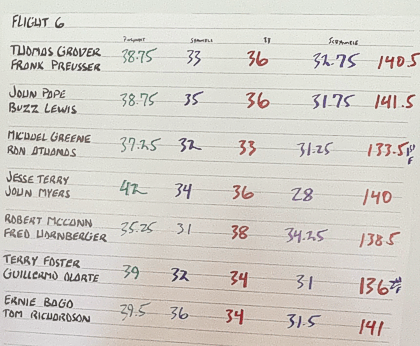 FLIGHT 6
SCRAMBLE
THOMAS GROVER 38.75 33 36 32.75 140.5
FRANK PREUSSER
JOHN POPE 38.75 35 36 31.75 141.5
BUZZ LEWIS
MICHAEL GREENE 37.25 32 33 31.25 133.5 1ST F
RON
JESSE TERRY 42 34 36 28 140
JOHN MYERS
ROBERT MCCANN 35.25 31 38 34.25 138.5
FRED HORNBERGER
TERRY FOSTER 39 32 34 31 136 2ND F
GUILLERMO OLARTE
ERNIE BAGO 39.5 36 34 31.5 141
TOM RICHARDSON